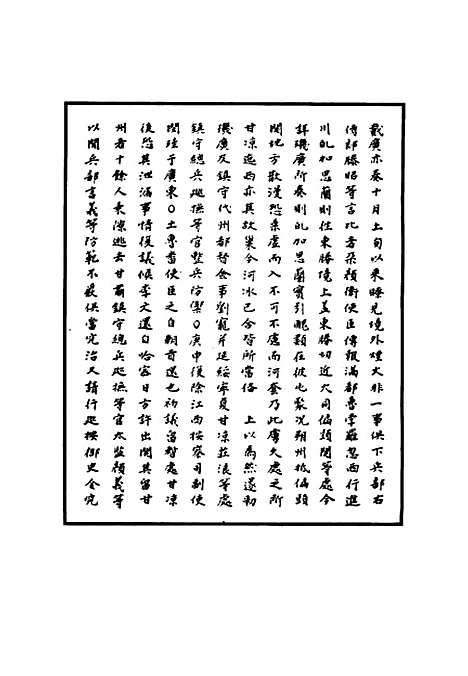 戴廣亦奏十月上旬以來瞭見境外煙火非一事俱下兵部右
侍郎滕昭等言比者朵顏衛使臣傳報滿都魯孛羅忽西行進
川乩加思蘭則往東勝境上盖東勝切近大同偏頭関等處今
詳璣廣所奏則乩加思蘭實引醜類在彼屯聚况朔州抵偏頭
関地方散漫恐乗虛而入不可不慮而河套乃此虜久處之所
甘凉迤西亦其故巢今河冰已合皆所當俻　上以為然遂勑
璣廣及鎮守代州都督僉事劉寵并延綏寧夏甘凉莊浪等處
鎮守總兵巡撫等官整兵防禦○庚申復除江西按察司副使
閻珪于廣東○土魯番使臣之自朝貢還也初議留暫處甘凉
後恐其泄漏事情復議候李文還自哈密日方許出関其留甘
州者十餘人乗隙逃去甘肅鎮守總兵巡撫等官太監顏義等
以聞兵部言義等防範不嚴俱當究治又請行巡按御史全究